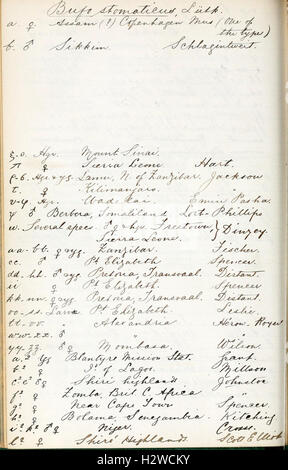 Bufo stomaticus, Lütk.
a. ♀ Assam (!) Copenhagen Mus (One of
the types)
b. ♂ Sikkim Schlagintweit.
ξ-o. Hgr. Mount Sinai.
π ♀ Sierra Leone Hart.
ρ-σ. Hgr & yg. Lamu, N of Zanzibar. Jackson
τ. ♀ Kilimanjaro. "
Hgr. Wadelai. Emin Pasha.
ψ ♂ Berbera, Somaliland Lort-Phillips
w. Several specs. ♂ ♀ & hgr. Freetown
Sierra Leone. Dinzey.
aa-bb. ♀ & yg. Zanzibar. Fischer.
cc. ♂ Pt Elizabeth Spencer.
dd.-hh. ♂ & yg Pretoria, Transvaal. Distant.
ii ♀ Pt Elizabeth. Spencer
kk.-nn. ♀ & yg Pretoria, Transvaal. Distant.
oo.-ss. Pt Elizabeth. Leslie
tt.-vv. Alexandria Heron-Royer
ww.-xx. ♂ "
yy. zz. ♂ ♀ Mombasa. Wilson
yg Blantyre Mission Stat. Grant.
♀ I. of Lagos. Millson
♂ ♀ Shiré highlands Johnston
♀ Zomba, Brit. C. Africa "
♀ Near Cape Town Spencer.
♀ Bolama, Senegambia. Kitching
♂ ♀ Niger. Cross.
♀ Shiré Highlands Scott Elliot
alamy
Image ID: H2WCKY
www.alamy.com